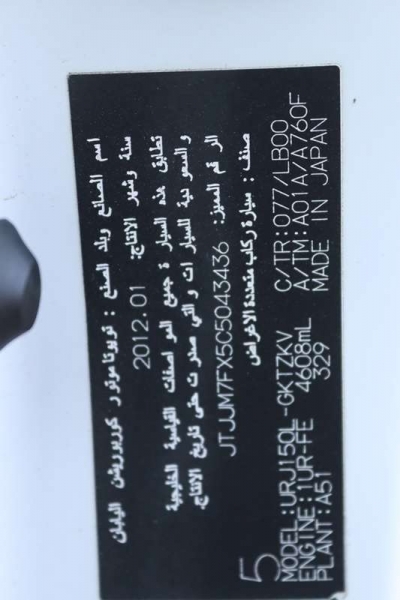 اسم الصانع وبلد الصنع : تويوتا موتور كوربوريشن اليابان
سنة وشهر الانتاج: 2012.01
تطابق هذه السيارة جميع المواصفات القياسية الخليجية
والسعودية للسيارات والتي صدرت حتى تاريخ الانتاج.
الرقم المميز: JTJJM7FX5C5043436
صنف : سيارة ركاب متعددة الاغراض
5
MODEL:URJ150L-GKTZKV C/TR:077/LB00
ENGINE:1UR-FE 4608mL A/TM:A01A/A760F
PLANT:A51 329 MADE IN JAPAN